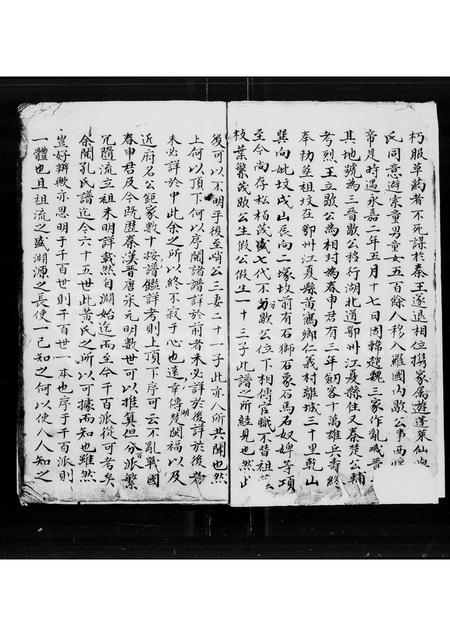 朽服單約者不死謀於秦王遂退相位携家屬遊蓬萊仙
氏同意避秦童男童女五百餘人移入羅國內歇公事西
帝是時遇永嘉二年五月十七日因韓趙魏三家作亂城晋
其地號為三晋歇公移行湖北道鄂州江夏縣住又蔡楚公輔
考烈王立歇公為相封為春申君有三年釼客十萬雄兵壽終
奉勅塟祖坟在鄂州江夏縣黃鶴鄉仁義村離城三十里乾山
巽向妣坟戌山辰向二塚坟前有石獅石象石馬石奴婢等項
至今尚存松柏茂盛七代不方歇公位下相傳官職不替祖
枝葉繁茂歇公生假公假公生一十三子此譜之所經見也然
後可以不明乎後至峭公三妻二十一子此亦人所共聞也然
上何以頂下何以序閱諸譜詳於前者未必詳於後詳於後者
未必詳於中此余之所以終不寂于心也遠幸傳楚閩福以及
近府名公鉅家數十按譜鑑詳考則上頂下序可云不亂戰國
春申君及今既歷秦漢晉唐宋元明數世可以推算但分派繁
冗隨流立祖未明詳載然自湖始迄而至今千百派從可考矣
余閱孔氏譜迄今六十五世此黃氏之所以可據而知也雖然
豈好辨歟亦思明于千百世則千百世一本也序于千百派則
一體也且祖流之盛淵源之長使一己知之何以使人人知之